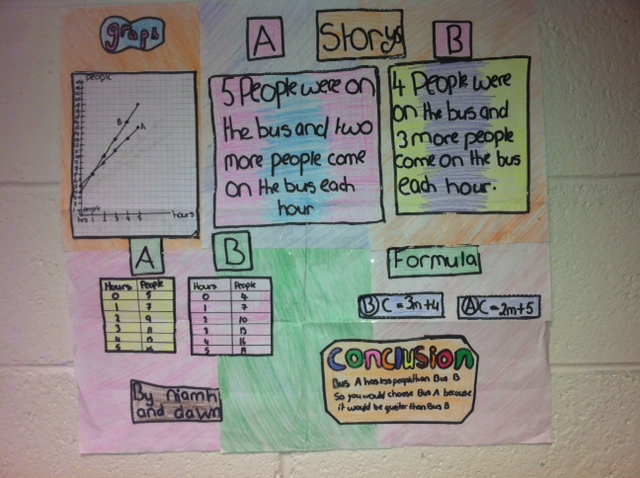 graph
A
Storys
B
people
B
A
people
hrs 1 2 3 4 5
hours
5 People were on
the bus and two
more people come
on the bus each
hour
4 People were
on the bus and
3 more people
come on the bus
each hour.
A
Hours People
0 5
1 7
2 9
3 11
4 13
5
B
Hours People
0 4
1 7
2 10
3 13
4 16
5 19
Formula
B C=3m+4
A C=2m+5
Conclusion
Bus A has less people than Bus B
So you would choose Bus A because
it would be quieter than Bus B
By niamh
and dawn